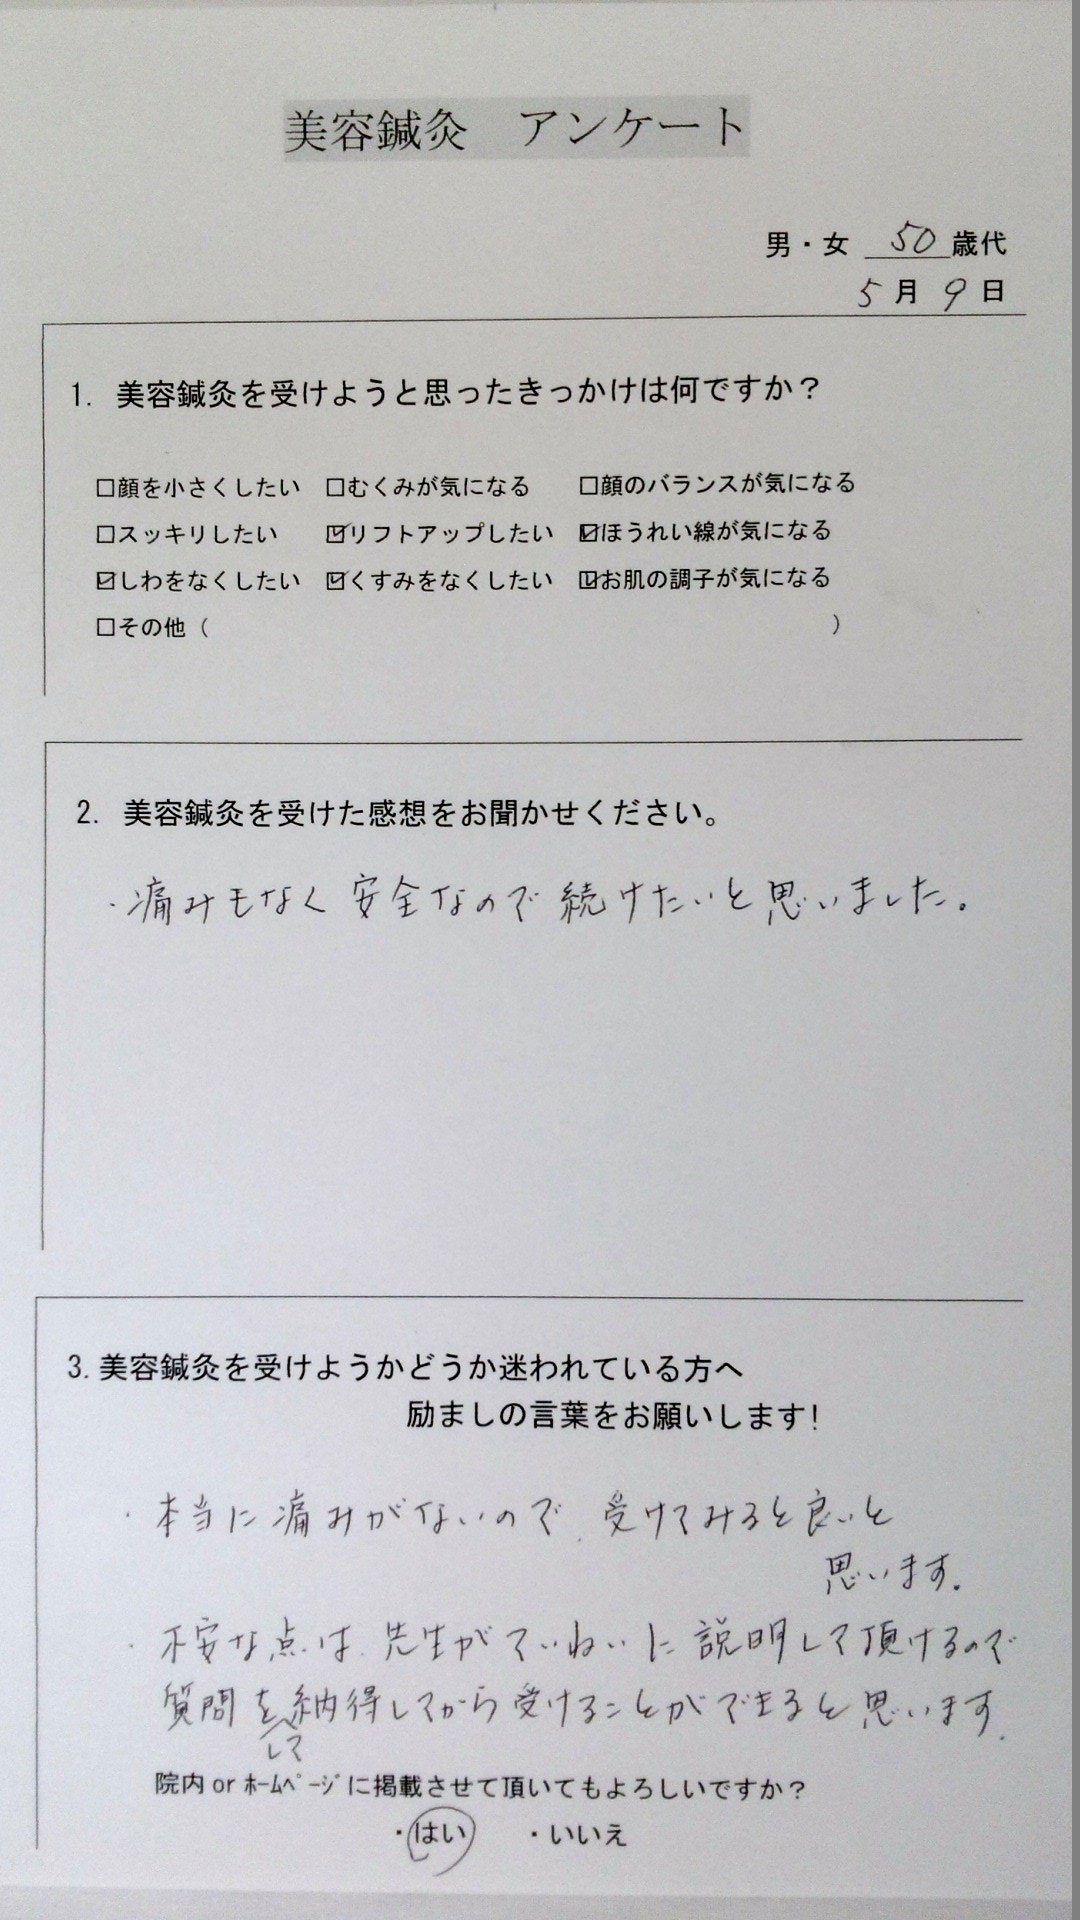 美容鍼灸　アンケート
男・女 50歳代
5月9日
1. 美容鍼灸を受けようと思ったきっかけは何ですか？
□顔を小さくしたい □むくみが気になる □顔のバランスが気になる
□スッキリしたい ☑リフトアップしたい ☑ほうれい線が気になる
☑しわをなくしたい ☑くすみをなくしたい ☑お肌の調子が気になる
□その他（　　　）
2. 美容鍼灸を受けた感想をお聞かせください。
・痛みもなく安全なので続けたいと思いました。
3. 美容鍼灸を受けようかどうか迷われている方へ
励ましの言葉をお願いします！
・本当に痛みがないので、受けてみると良いと
思います。
・不安な点は、先生がていねいに説明して頂けるので
質問を納得してから受けることができると思います。
して
院内orﾎｰﾑﾍﾟｰｼﾞに掲載させて頂いてもよろしいですか？
・はい　・いいえ